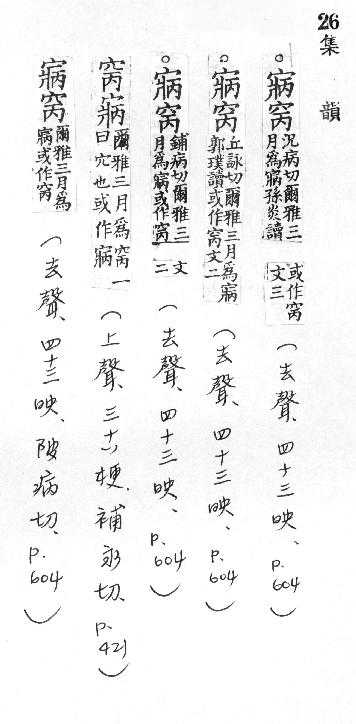 26 集韻
○寎窉 況病切爾雅三月為寎孫炎讀或作窉文三(去聲、四十三映、p.604)
○寎窉 丘詠切爾雅三月為寎郭璞讀或作窉文二(去聲、四十三映、p.604)
○寎窉 鋪病切爾雅三月為寎或作窉文二(去聲、四十三映、p.604)
窉寎 爾雅三月為窉一曰穴也或作寎(上聲、三十八梗、補永切、p.421)
寎窉 爾雅三月為寎或作窉(去聲、四十三映、陂病切、p.604)